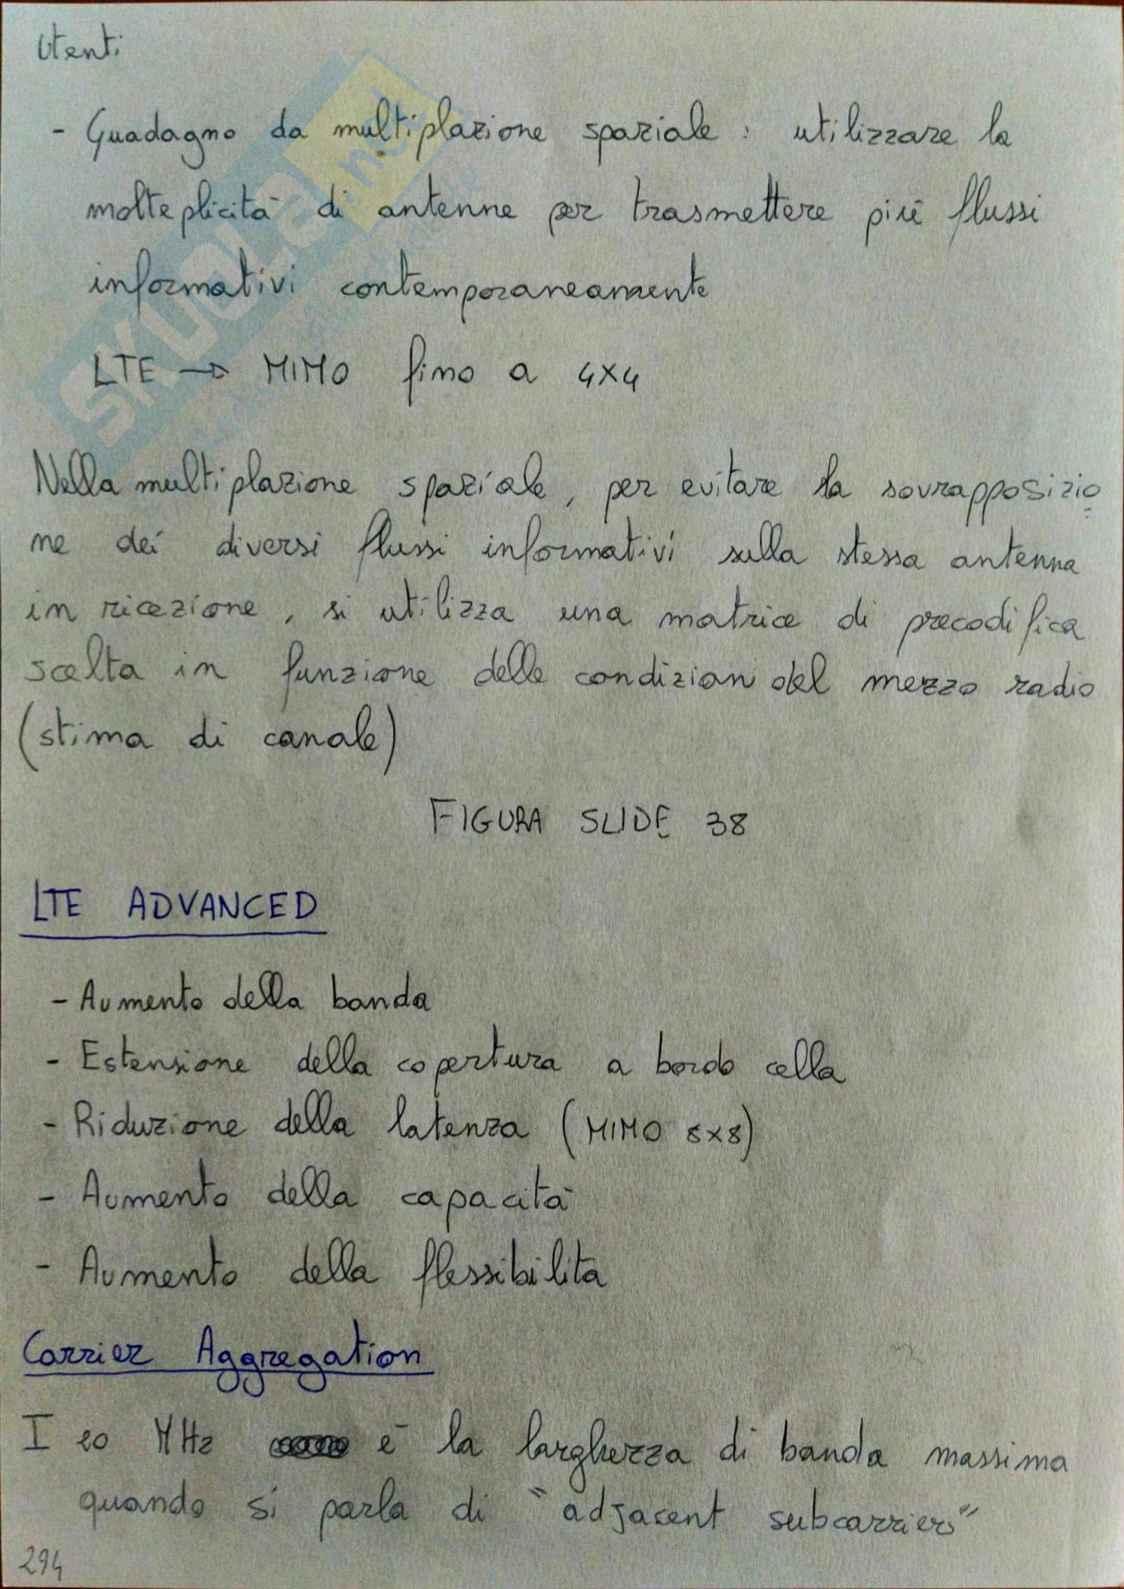 Utenti
- Guadagno da multiplazione spaziale: utilizzare la
molteplicità di antenne per trasmettere più flussi
informativi contemporaneamente
LTE → MIMO fino a 4x4
Nella multiplazione spaziale, per evitare la sovrapposizio
ne dei diversi flussi informativi sulla stessa antenna
in ricezione, si utilizza una matrice di precodifica
scelta in funzione delle condizioni del mezzo radio
(stima di canale)
FIGURA SLIDE 38
LTE ADVANCED
- Aumento della banda
- Estensione della copertura a bordo cella
- Riduzione della latenza (MIMO 8x8)
- Aumento della capacità
- Aumento della flessibilita
Carrier Aggregation
I 20 MHz è la larghezza di banda massima
quando si parla di "adjacent subcarriers"
294
SKUOLA.net